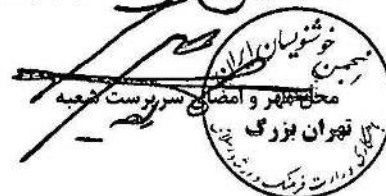 انجمن خوشنویسان ایران
محل مهر و امضای سرپرست شعبه
تهران بزرگ
وزارت فرهنگ و